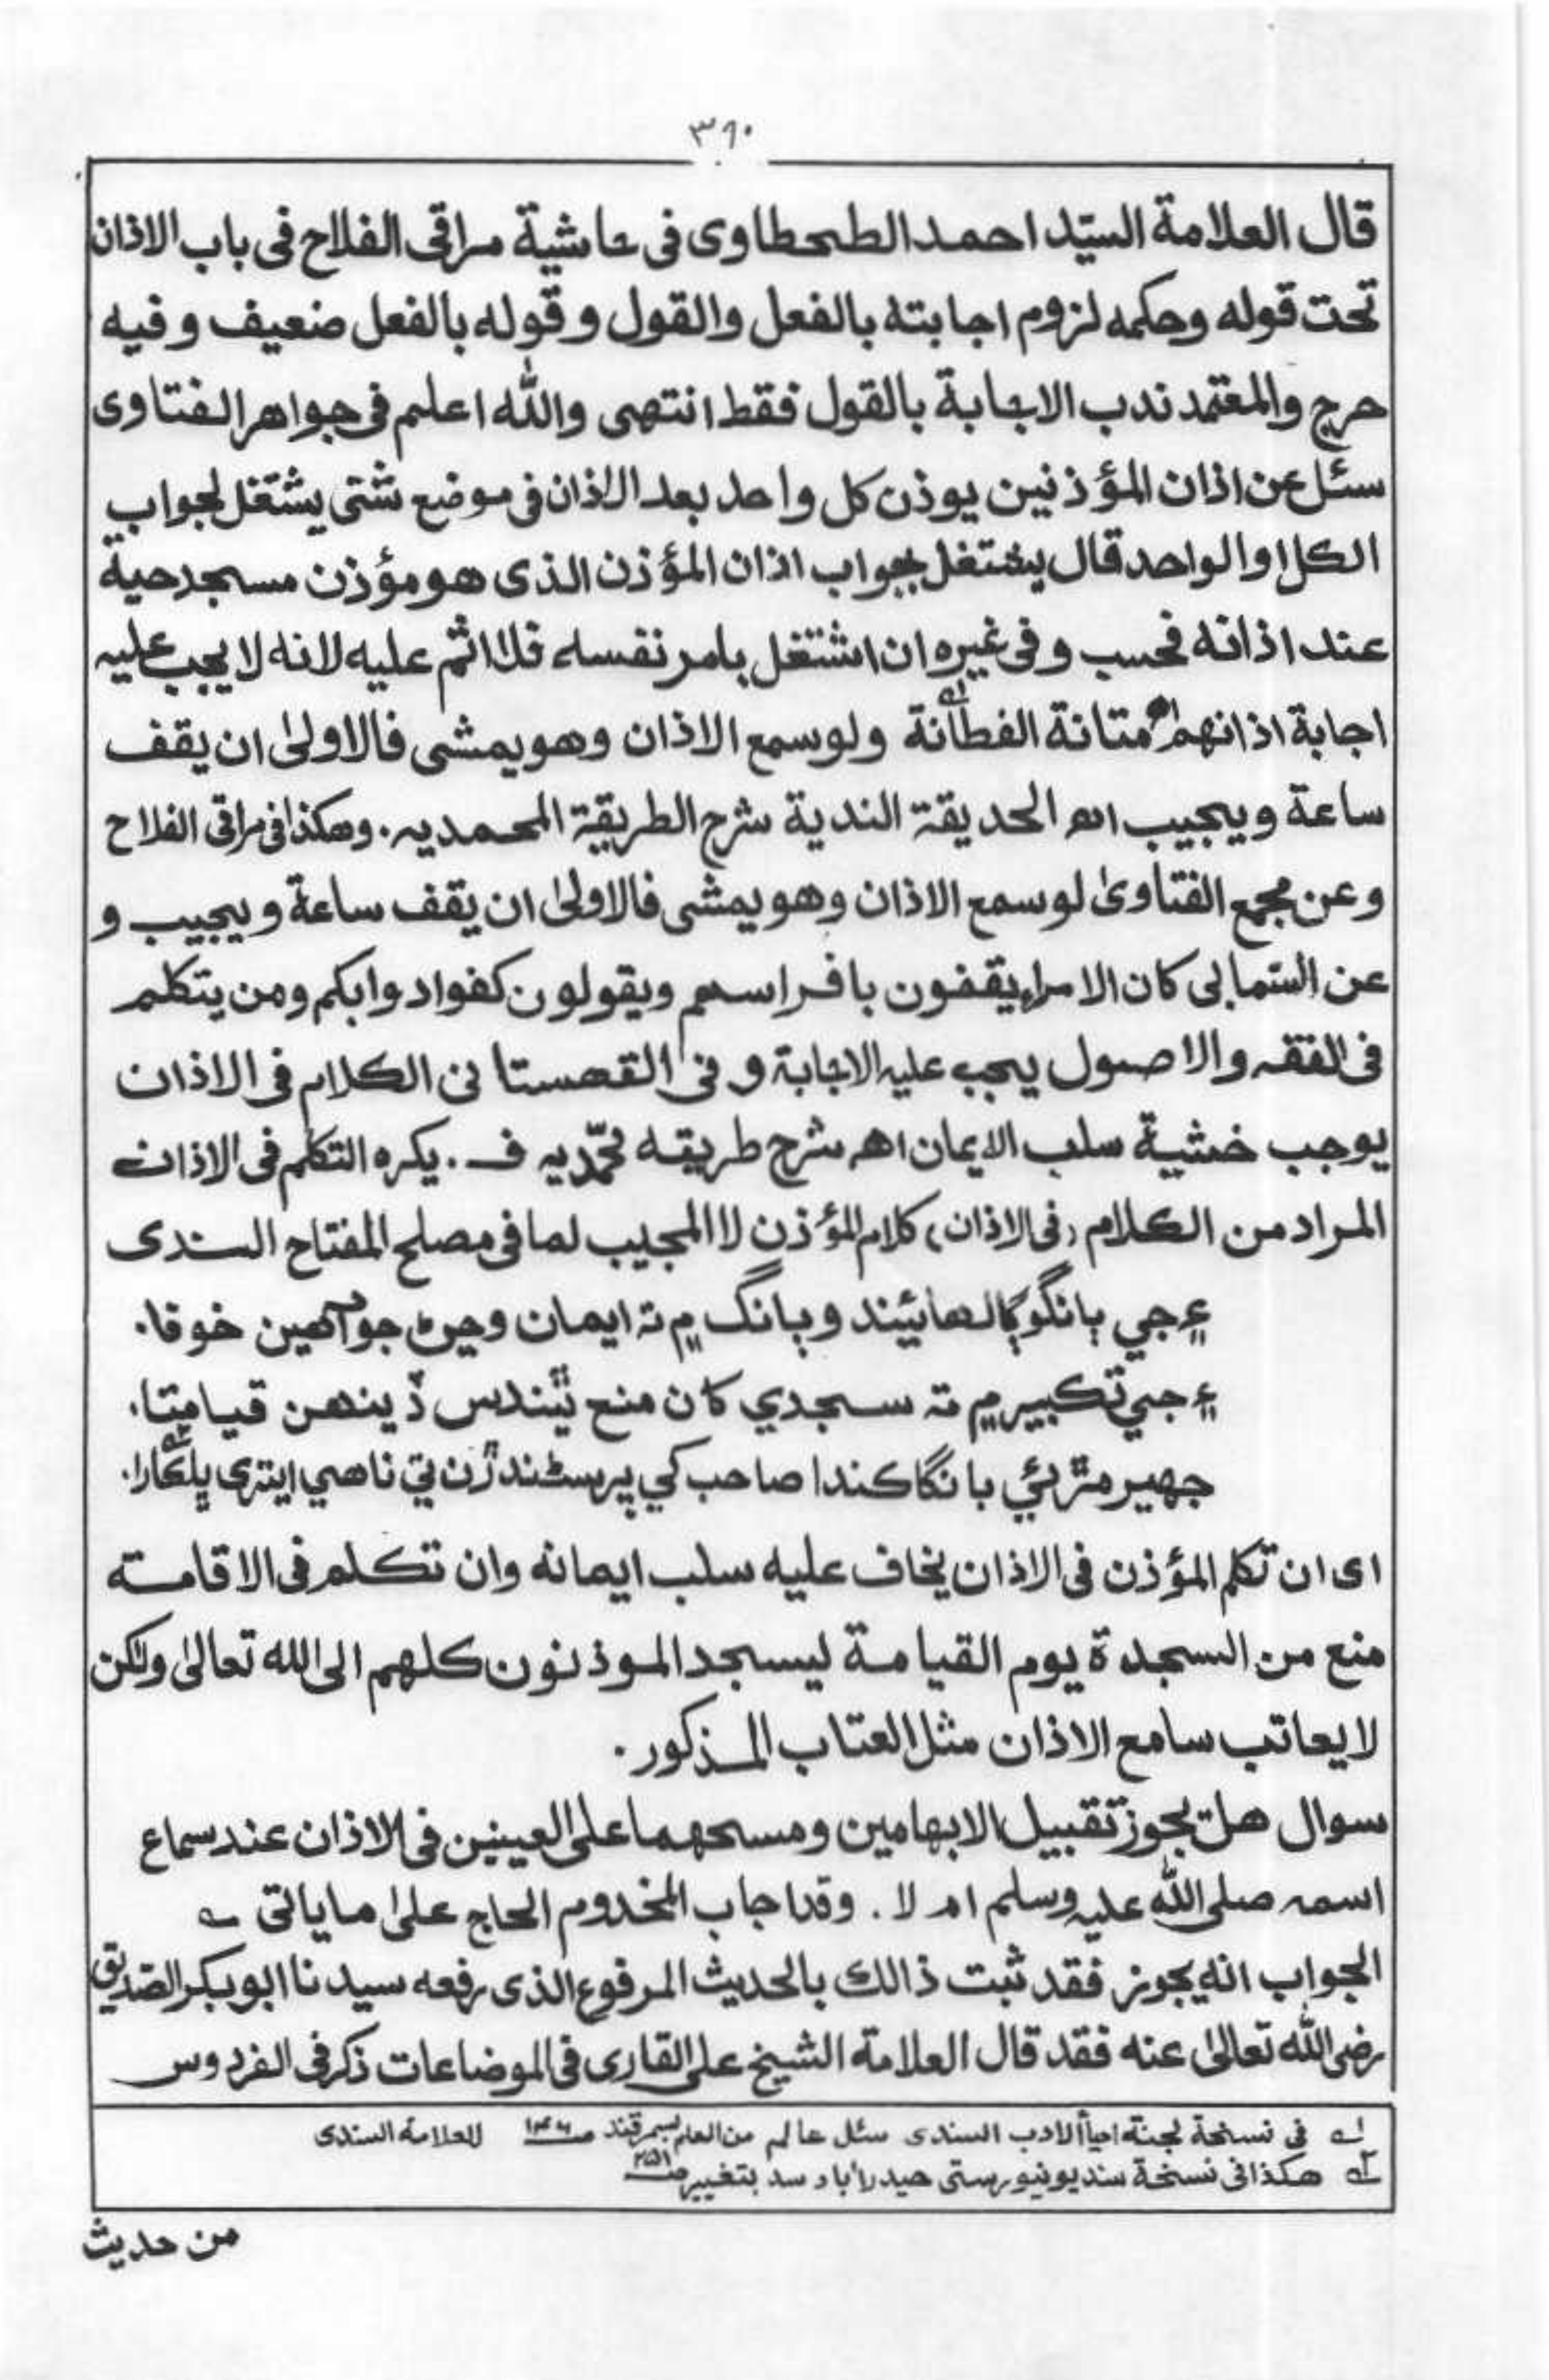 ٣٦٠
قال العلامة السيّد احمد الطحطاوى فى حاشية مراقى الفلاح فى باب الاذان
تحت قوله وحكمه لزوم اجابته بالفعل والقول و قوله بالفعل ضعيف و فيه
حرج والمعتمد ندب الاجابة بالقول فقط انتهى والله اعلم فى جواهر الفتاوى
سئل عن اذان المؤذنين يوذن كل واحد بعد الاذان فى موضع شتى يشتغل لجواب
الكل او الواحد قال يشتغل بجواب اذان المؤذن الذى هو مؤذن مسجد حيه
عند اذانه فحسب و فى غيره ان اشتغل بامر نفسه فلا اثم عليه لانه لا يجب عليه
اجابة اذانهم اھ متانة الفطانة له ولو سمع الاذان وهو يمشى فالاولىٰ ان يقف
ساعة و يجيب اھ الحديقة الندية شرح الطريقة المحمديه. وهكذا فى مراقى الفلاح
و عن مجمع الفتاوىٰ لو سمع الاذان وهو يمشى فالاولىٰ ان يقف ساعة و يجيب و
عن السّمالى كان الامراء يقفون بافراسهم ويقولون كفوا دوابكم ومن يتكلم
فى الفقه والاصول يجب عليه الاجابة و فى القهستانى الكلام فى الاذان
يوجب خشية سلب الايمان اھ شرح طريقه محمّديه ف. يكره التكلم فى الاذان
المراد من الكلام (فى الاذان) كلام المؤذن لا المجيب لما فى مصلح المفتاح السندى
۽ جي ٻانگو ڳالهائيندو ٻانگ ۾ ته ايمان وڃڻ جو آهين خوفا.
۽ جي تكبير ۾ ته سجدي كان منع ٿيندس ڏينهن قيامتا.
جهير مڙئي بانگا كندا صاحب كي پر سندڙن تي ناهي ايتري پلڪارا.
اى ان تكلم المؤذن فى الاذان يخاف عليه سلب ايمانه وان تكلم فى الاقامة
منع من السجدة يوم القيامة ليسجد الموذنون كلهم الى الله تعالىٰ ولكن
لا يعاتب سامع الاذان مثل العتاب المذكور.
سوال هل يجوز تقبيل الابهامين ومسحهما على العينين فى الاذان عند سماع
اسمه صلى الله عليه وسلم ام لا. وقد اجاب المخدوم الحاج علىٰ ما ياتى
الجواب انه يجوز فقد ثبت ذالك بالحديث المرفوع الذى رفعه سيدنا ابوبكر الصّديق
رضى الله تعالىٰ عنه فقد قال العلامة الشيخ على القارى فى الموضاعات ذكر فى الفردوس
له فى نسخة لجنة احياأ الادب السندى سئل عالم من العلم بسمرقند للعلامة السندى
٢ه هكذا فى نسخة سنديونيورستى حيدرأباد سند بتغيير ص ٢٥١
من حديث